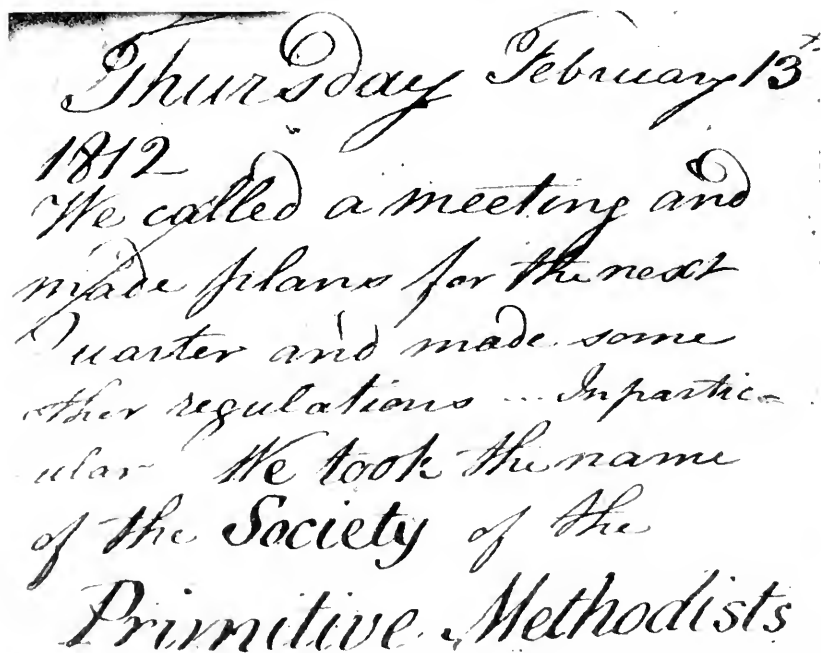 Thursday February 13th
1812
We called a meeting and
made plans for the next
Quarter and made some
other regulations ... In partic=
ular We took the name
of the Society of the
Primitive Methodists